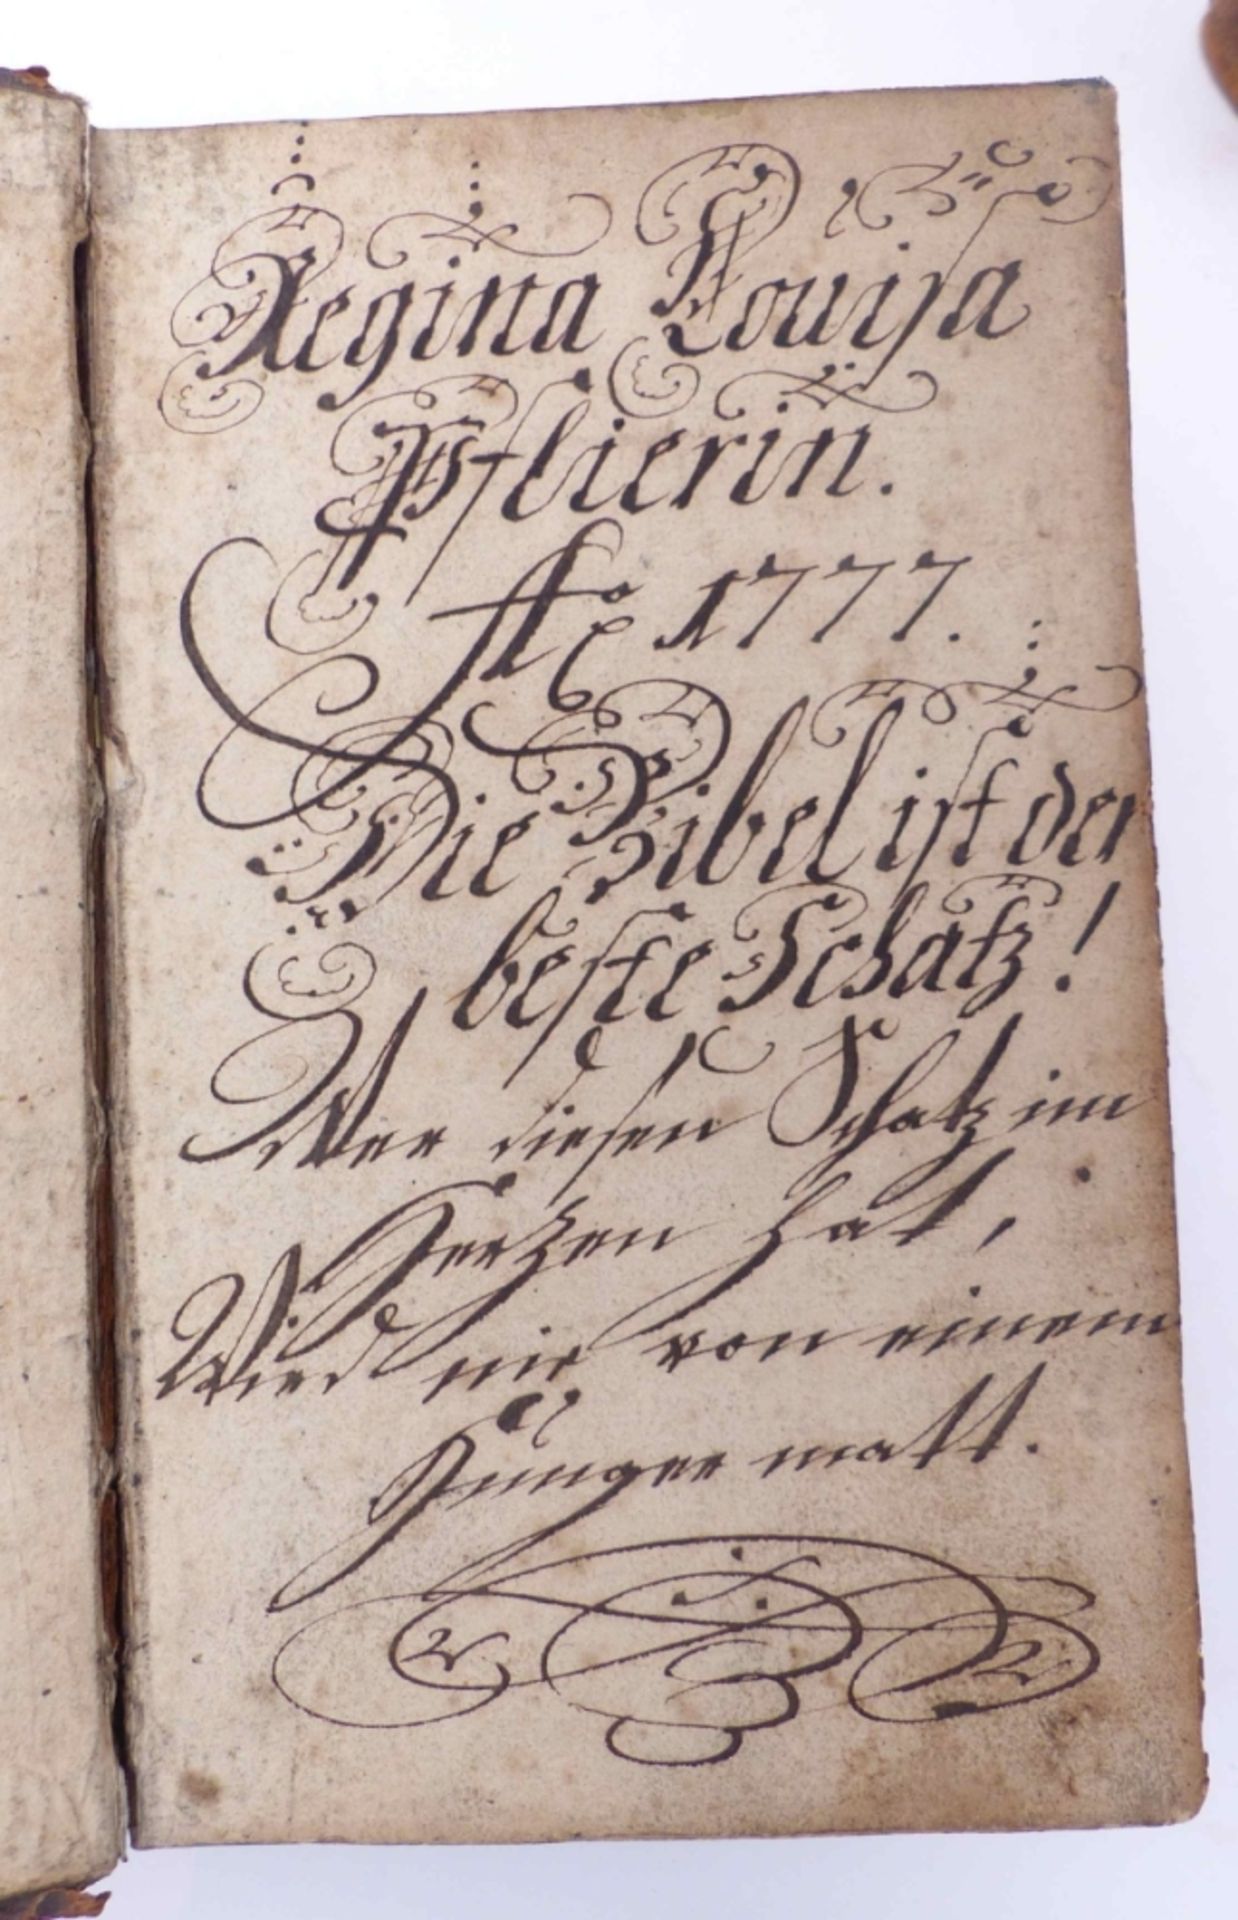 Regina Louisa
Pflierin.
Ao 1777.
Die Bibel ist der
beste Schatz!
Wer diesen Schatz im
Herzen hat,
Wird nie von einem
Hunger matt.